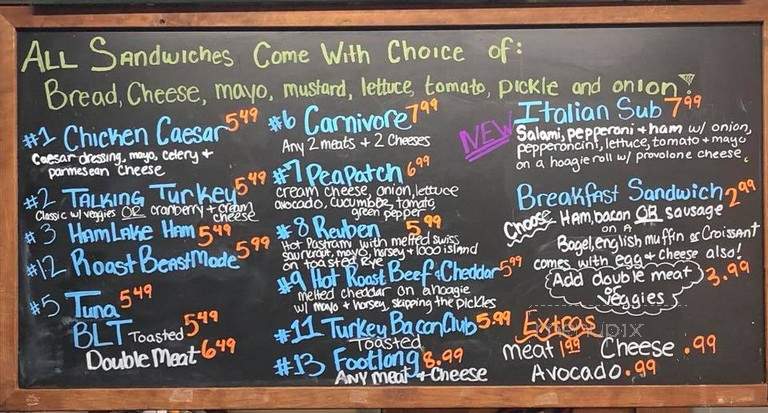 ALL SANDWICHES COME WITH CHOICE OF:
Bread, Cheese, mayo, mustard, lettuce, tomato, pickle and onion!
#1 Chicken Caesar 5.49
Caesar dressing, mayo, celery +
parmesean cheese
#2 TALKING TURKEY 5.49
Classic w/ veggies OR cranberry + cream
cheese
#3 HAMLAKE HAM 5.49
#12 ROAST BEAST MODE 5.99
#5 Tuna 5.49
BLT Toasted 5.49
Double Meat 6.49
#6 Carnivore 7.99
Any 2 meats + 2 Cheeses
#7 PEAPATCH 6.99
cream cheese, onion, lettuce
avocado, cucumber, tomato,
green pepper
#8 Reuben 5.99
Hot Pastrami with melted swiss
saurkraut, mayo, horsey + 1000 island
on toasted Rye
#9 Hot Roast Beef + Cheddar 5.99
melted cheddar on a hoagie
w/ mayo + horsey, skipping the pickles
#11 Turkey Bacon Club 5.99
Toasted
#13 Footlong 8.99
Any meat + Cheese
NEW
Italian Sub 7.99
Salami, pepperoni + ham w/ onion,
pepperoncini, lettuce, tomato + mayo
on a hoagie roll w/ provolone cheese.
Breakfast Sandwich 2.99
Choose HAM, bacon OR sausage
on a
Bagel, english muffin or Croissant
comes with egg + cheese also!
Add double meat 3.99
or
Veggies
Extras
meat 1.99 Cheese .99
Avocado .99